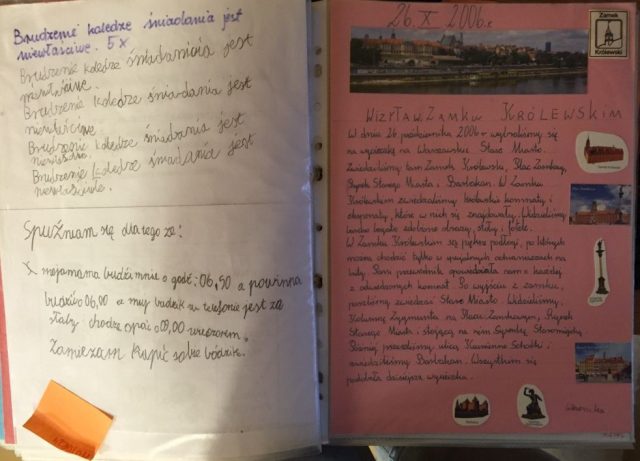 Brudzenie koledze śniadania jest
niewłaściwe. 5x
Brudzenie koledze śniadania jest
niewłaściwe
Brudzenie koledze śniadania jest
niewłaściwe
Brudzenie kolędze śniadania jest
niewłaściwe.
Spuźniam się dlatego że:
moja mama budźi mnie o godź: 06,50 a powinna
budźić o 06,00 a muj budzik w telefonie jest za
słaby chodze spać o 09,00 wieczorem.
Zamieżam kupić sobie bódzik.
26.X 2006r.
Zamek
Królewski
WIZYTA W ZAMKU KRÓLEWSKIM
W dniu 26 października 2006r wybraliśmy się
na wycieczkę na Warszawskie Stare Miasto.
Zwiedziliśmy tam Zamek Królewski, Plac Zamkowy,
Rynek Starego Miasta i Barbakan. W Zamku
Królewskim zwiedzaliśmy królewskie komnaty i
eksponaty, które w nich się znajdowały. Widzieliśmy
bardzo bogato zdobione obrazy, stoły i fotele.
W Zamku Królewskim są piękne podłogi, po których
można chodzić tylko w specjalnych ochraniaczach na
buty. Pani przewodnik opowiedziała nam o każdej
z odwiedzonych komnat. Po wyjściu z zamku,
poszliśmy zwiedzać Stare Miasto. Widzieliśmy:
Kolumnę Zygmunta na Placu Zamkowym, Rynek
Starego Miasta i stojącą na nim Syrenkę
Później przeszliśmy ulicą Kamienne Schodki i
zwiedziliśmy Barbakan. Wszystkim się
podobała dzisiejsza wycieczka.
Weronika